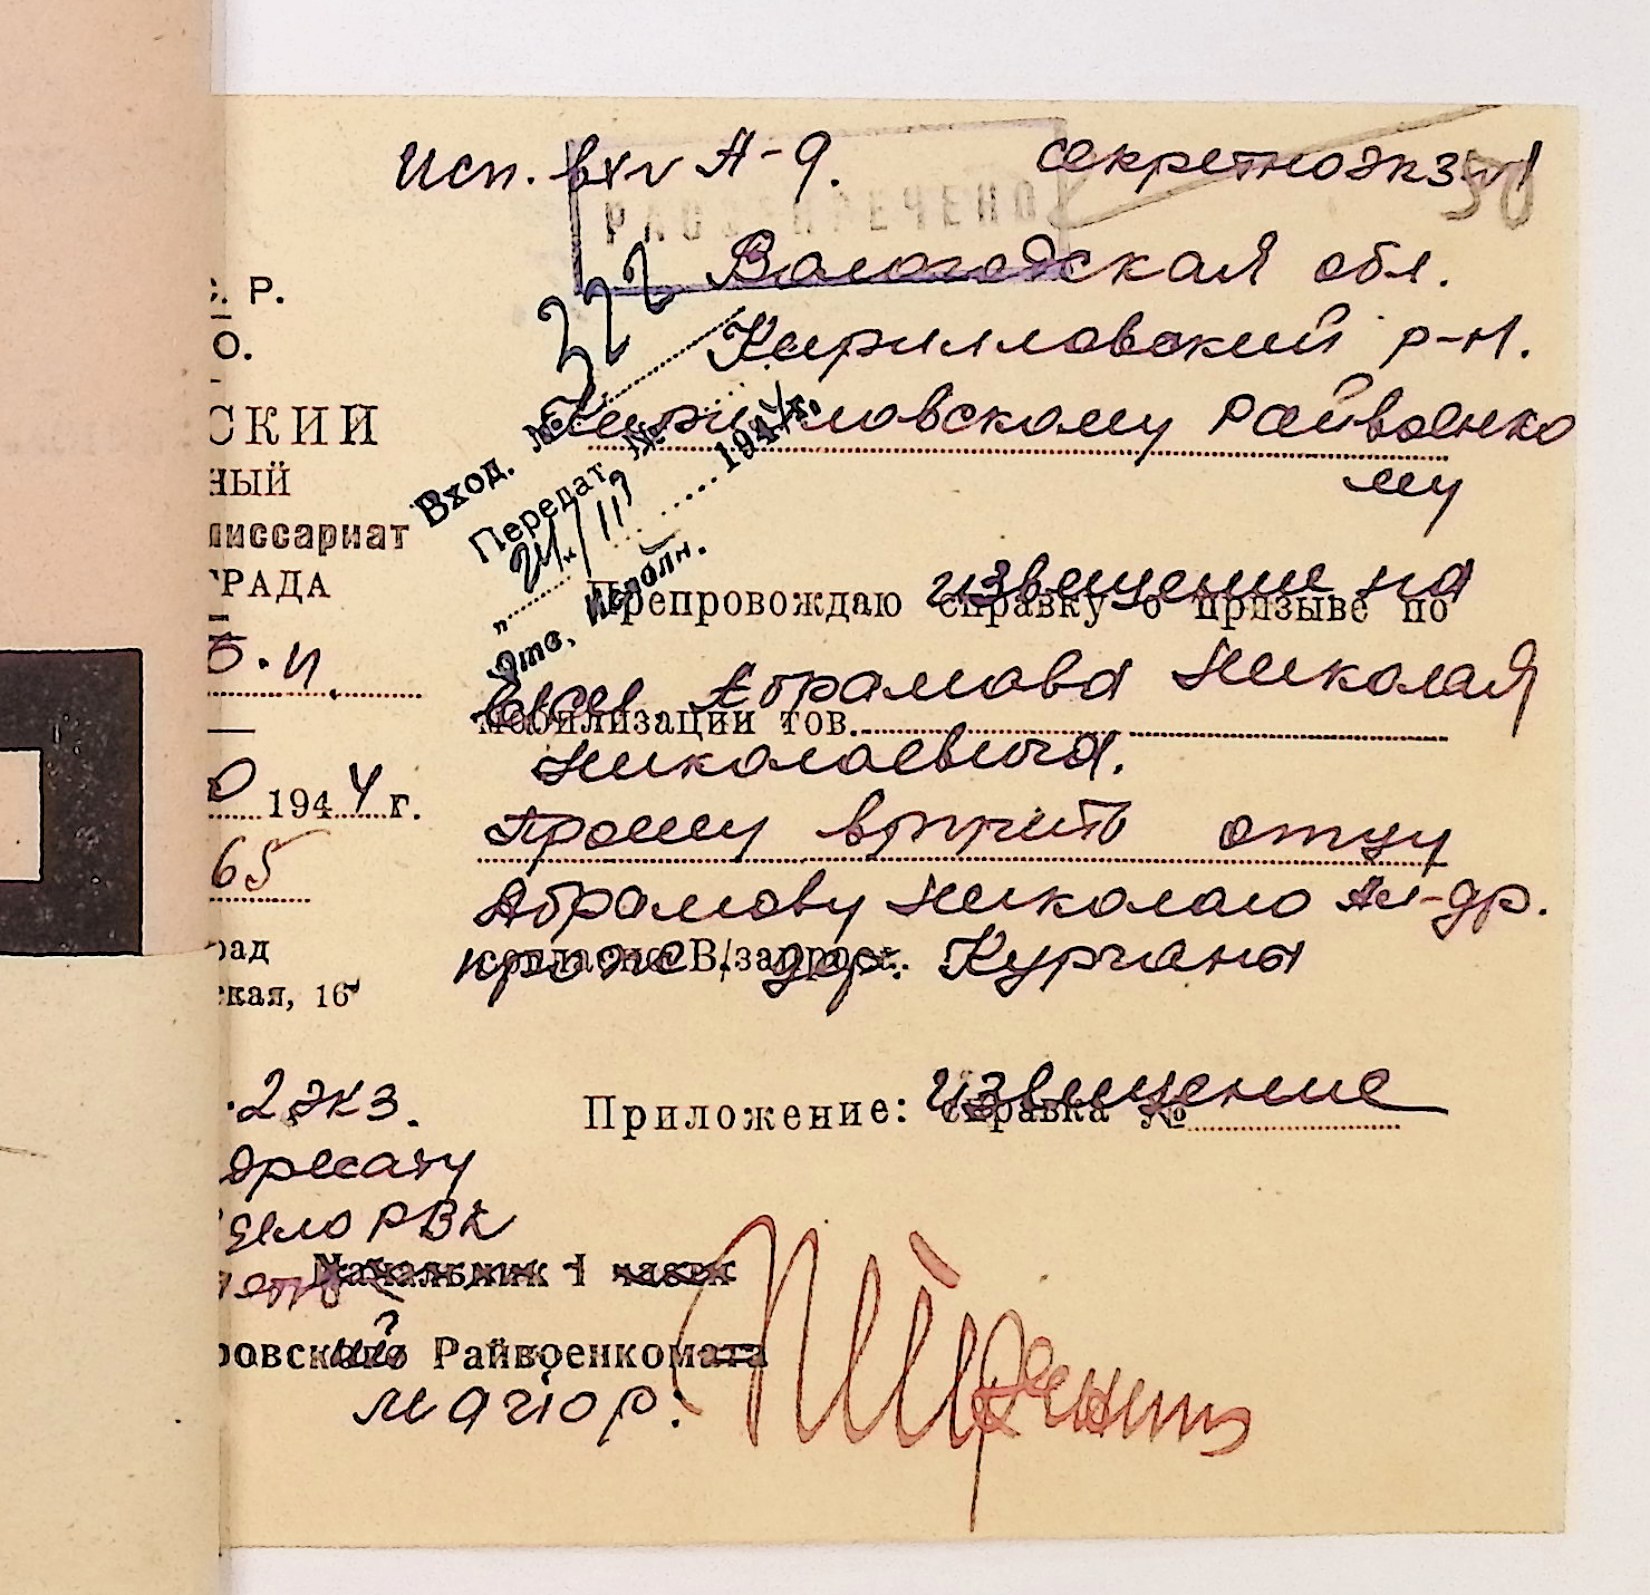 Исп. вх А-9. секретно экз 1
50
РАССЕКРЕЧЕНО
Вологодская обл.
322
Кирилловский р-н.
Кирилловскому Райвоенко
му
Вход. №
Передат. №
24/II 1944 г.
Отв. Исполн.
С. Р.
О.
СКИЙ
НЫЙ
миссариат
ГРАДА
1944 г.
65
рад
ская, 16
Препровождаю справку о призыве по
извещение на
мобилизации тов.
Абрамова Николая
Николаевича.
Прошу вручить отцу
Абрамову Николаю Ал-др.
согласно В/запрос.
прож. дер. Курганы
Приложение: справка №
извещение
2 экз.
адресату
дело РВК
Начальник 1 части
ровского Райвоенкомата
майор: